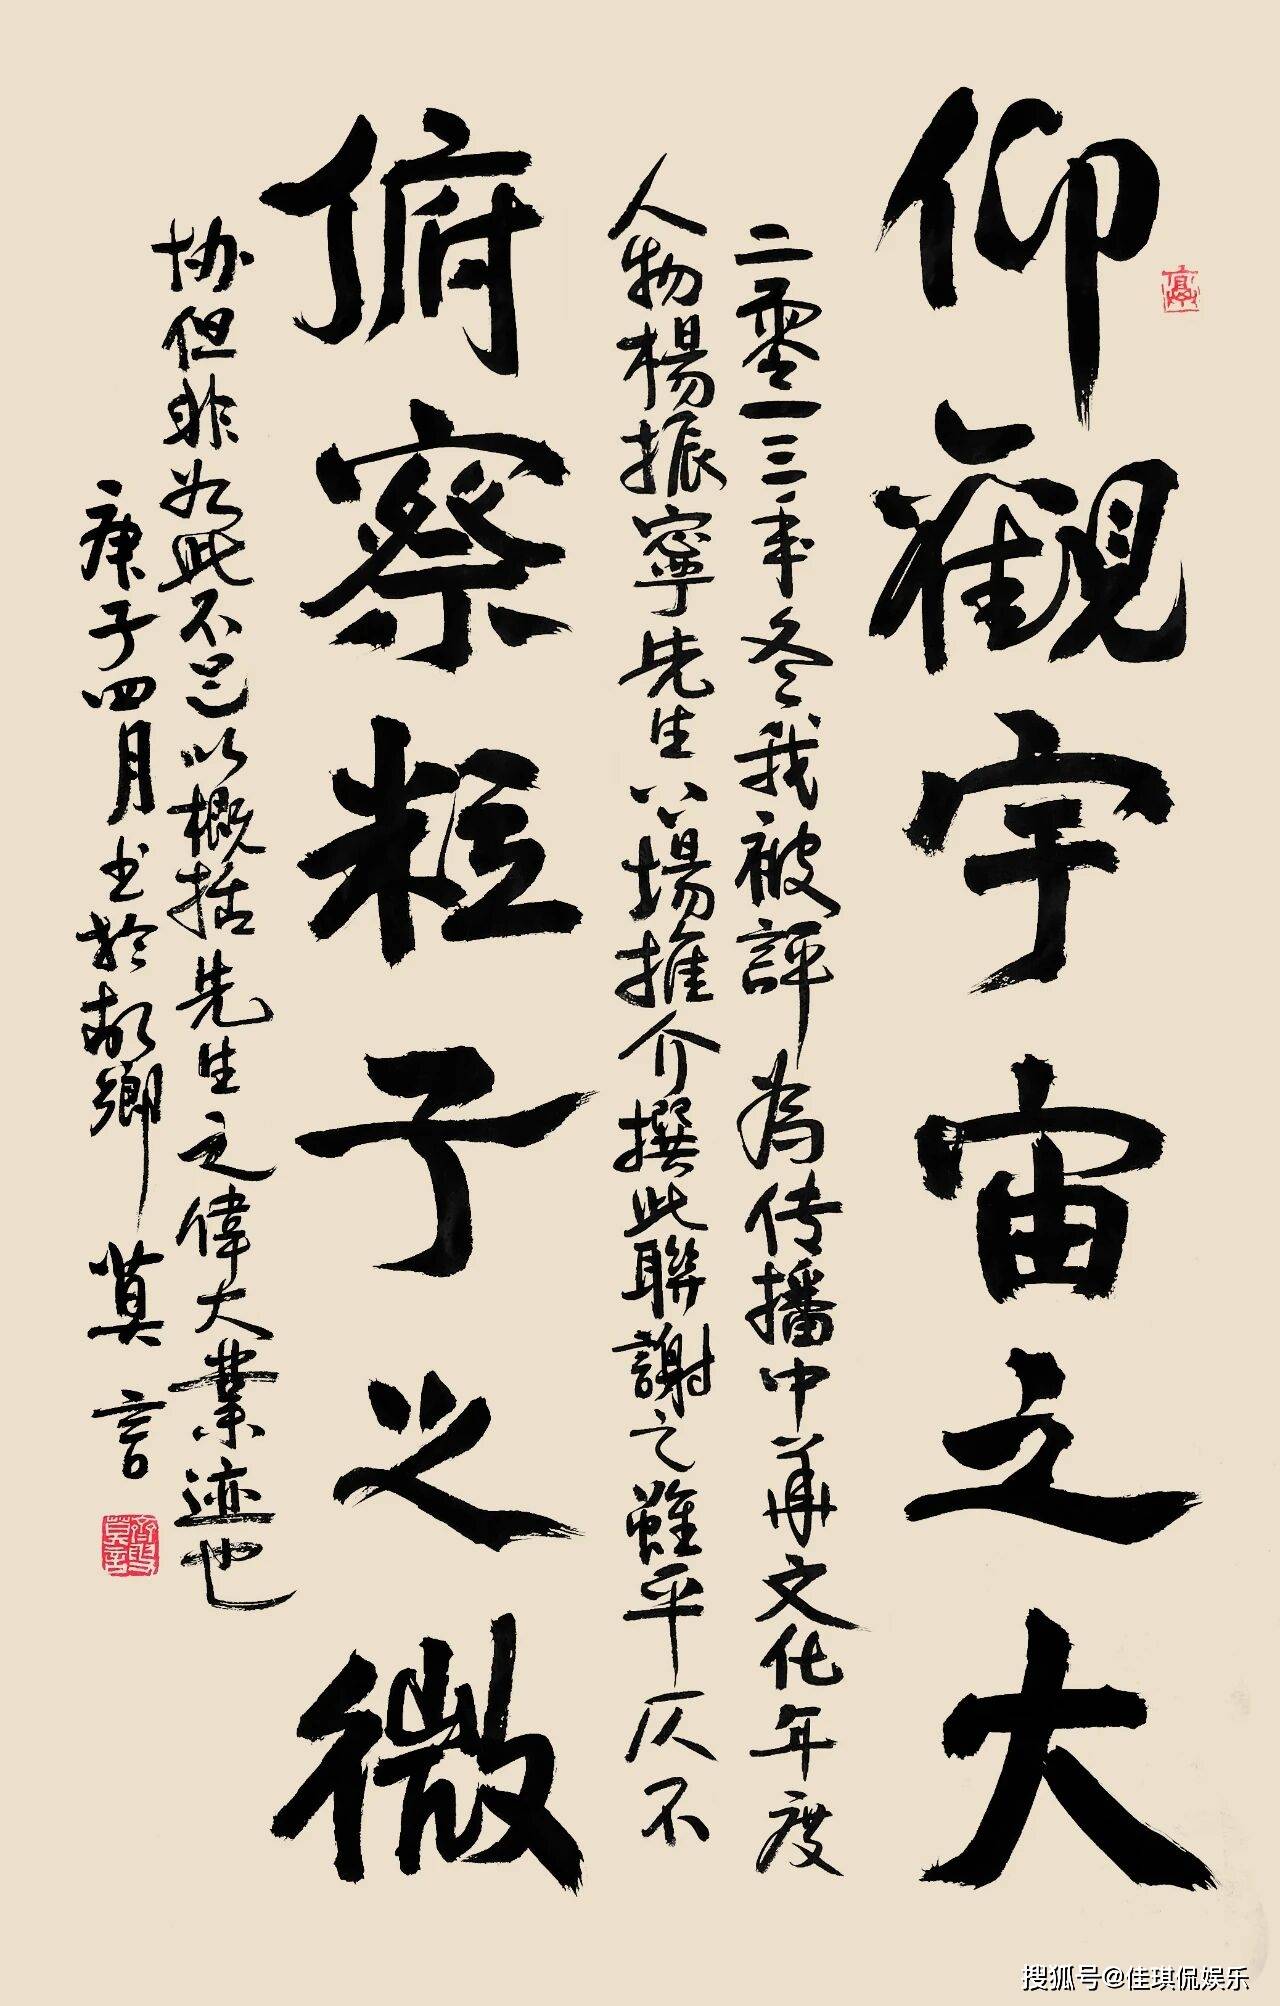 仰觀宇宙之大
二零一三年冬我被評為传播中華文化年度
人物楊振寧先生場推介撰此聯謝之雖平仄不
俯察粒子之微
协但非如此不足以概括先生之偉大業迹也
庚子四月书於故鄉 莫言
搜狐号@佳琪侃娱乐